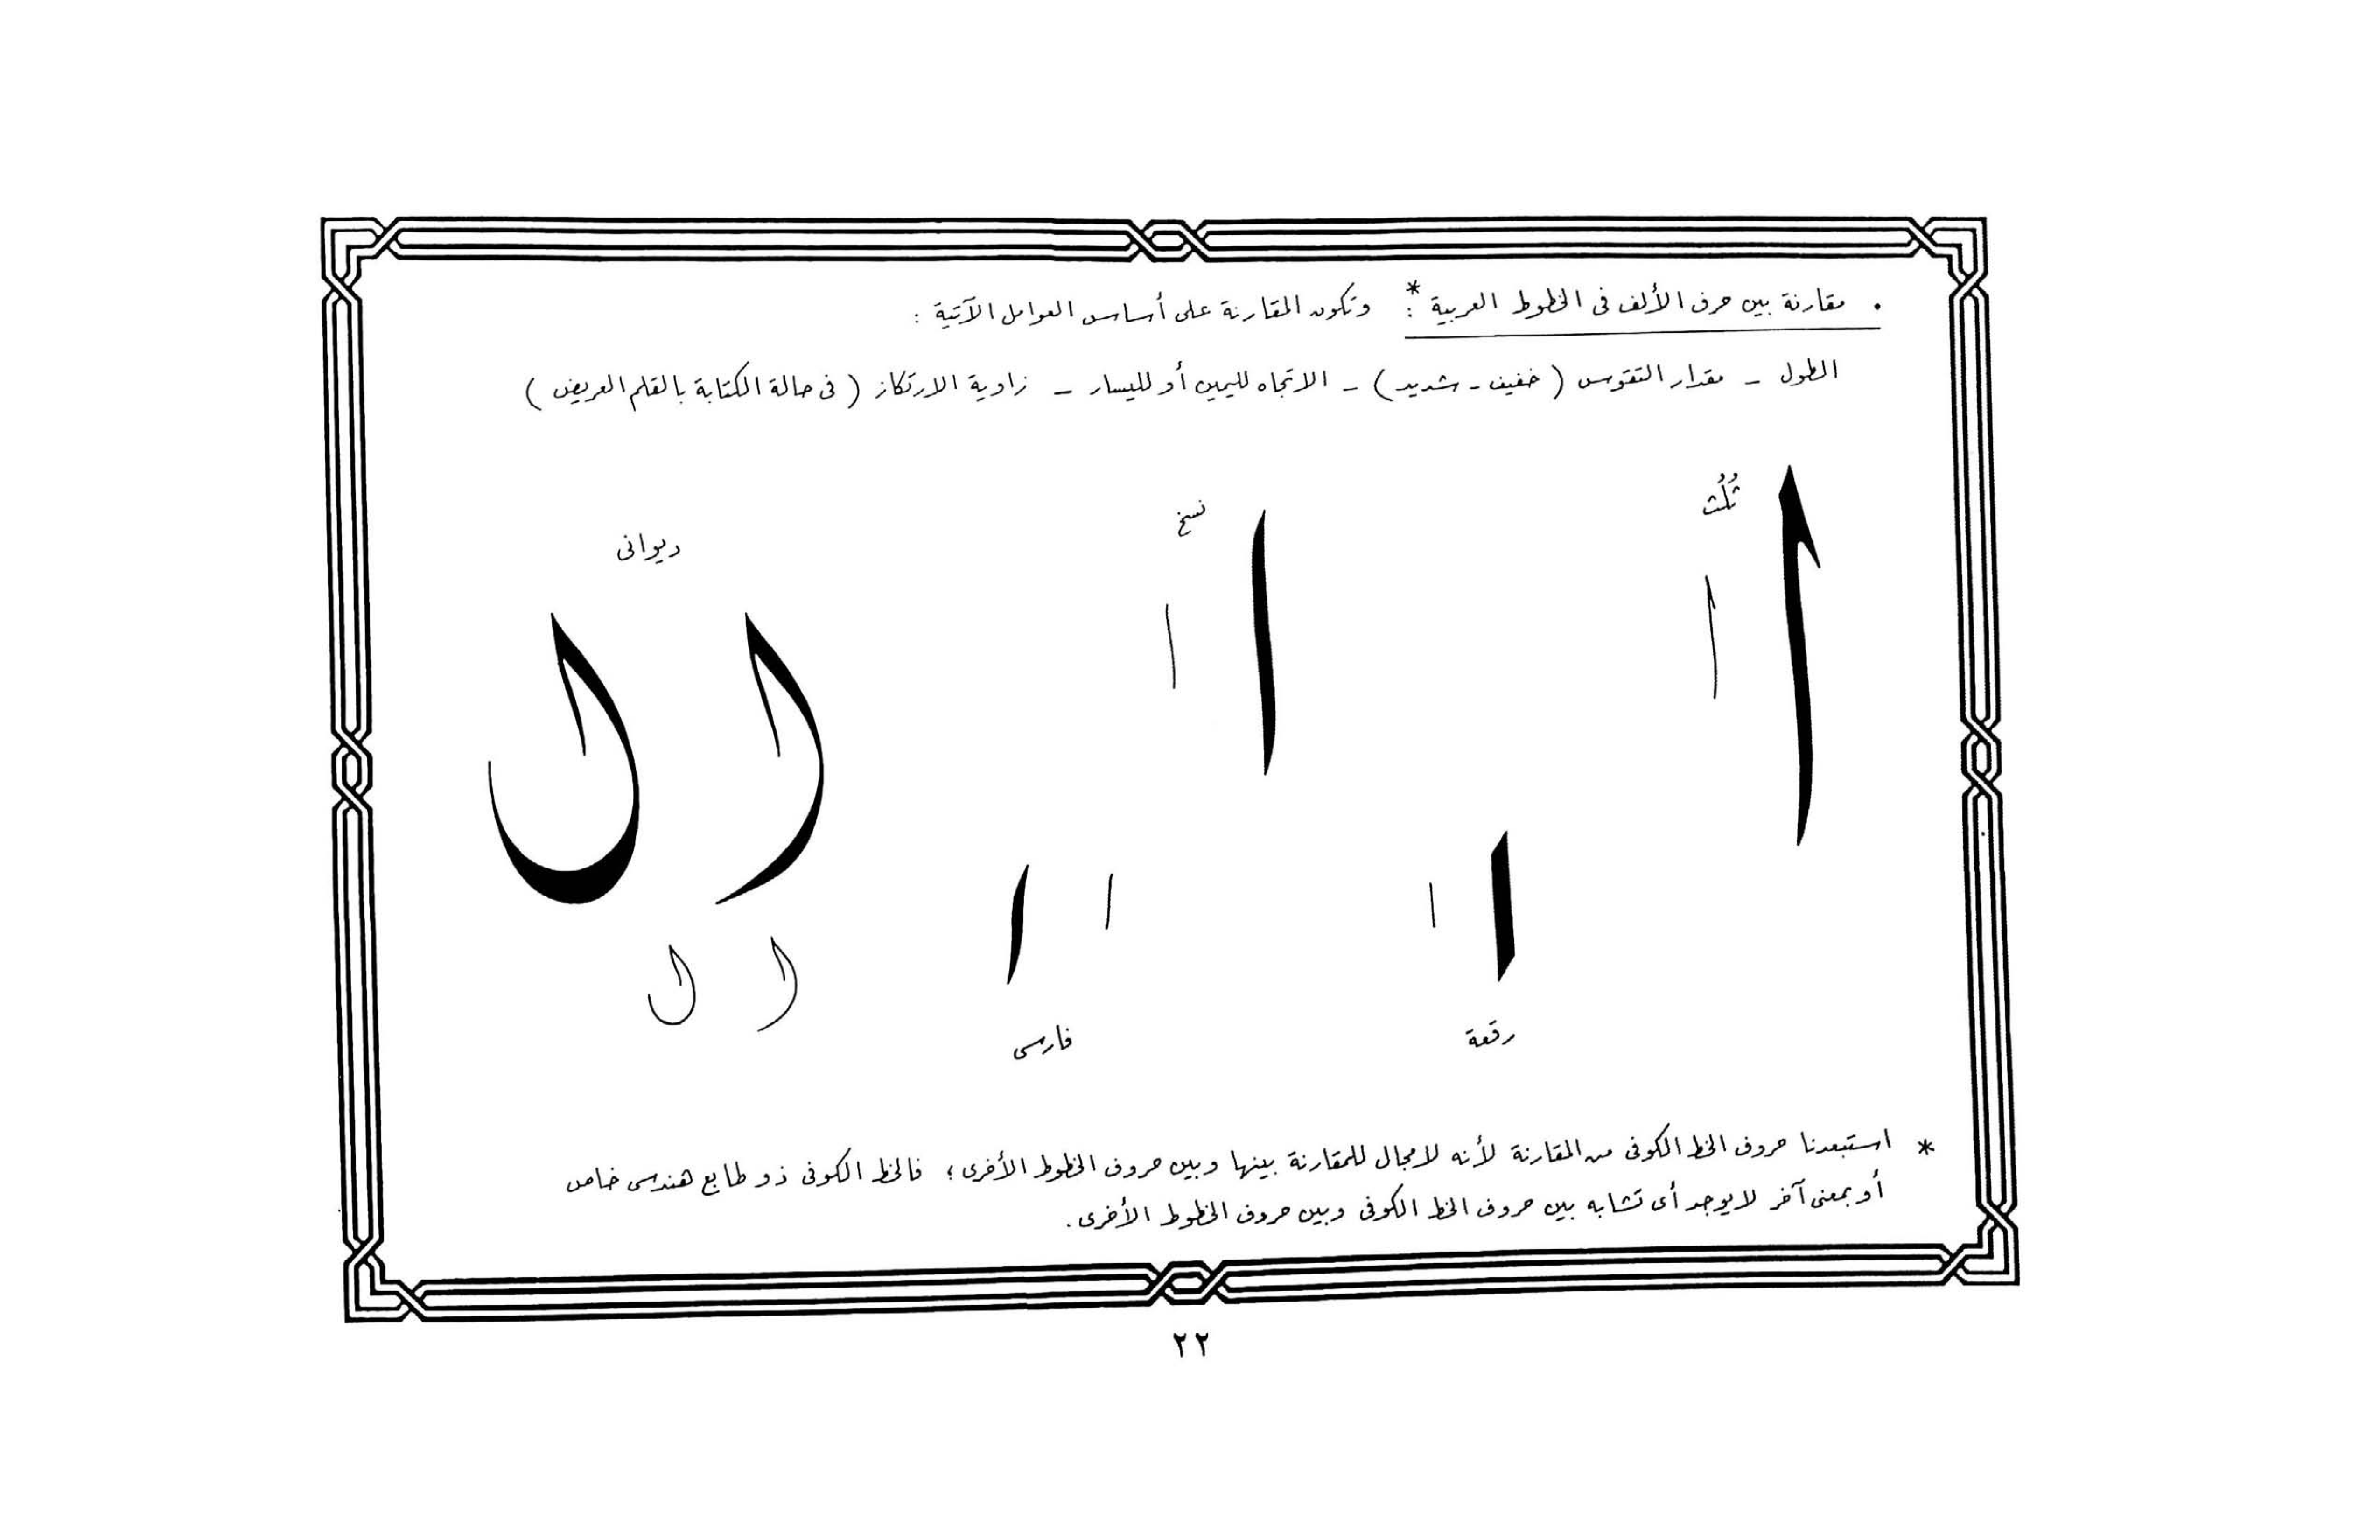 • مقارنة بين حرف الألف فى الخطوط العربية *: وتكون المقارنة على أساس العوامل الآتية :
الطول – مقدار التقوس ( خفيف - شديد ) – الاتجاه لليمين أو لليسار – زاوية الارتكاز ( فى حالة الكتابة بالقلم العريض )
ثُلُث
ا ا
نسخ
ا ا
ديوانى
ا ا
ا ا
ا ا
رقعة
ا ا
فارسى
* استبعدنا حروف الخط الكوفى من المقارنة لأنه لا مجال للمقارنة بينها وبين حروف الخطوط الأخرى ؛ فالخط الكوفى ذو طابع هندسى خاص
أو بمعنى آخر لا يوجد أى تشابه بين حروف الخط الكوفى وبين حروف الخطوط الأخرى .
٢٢